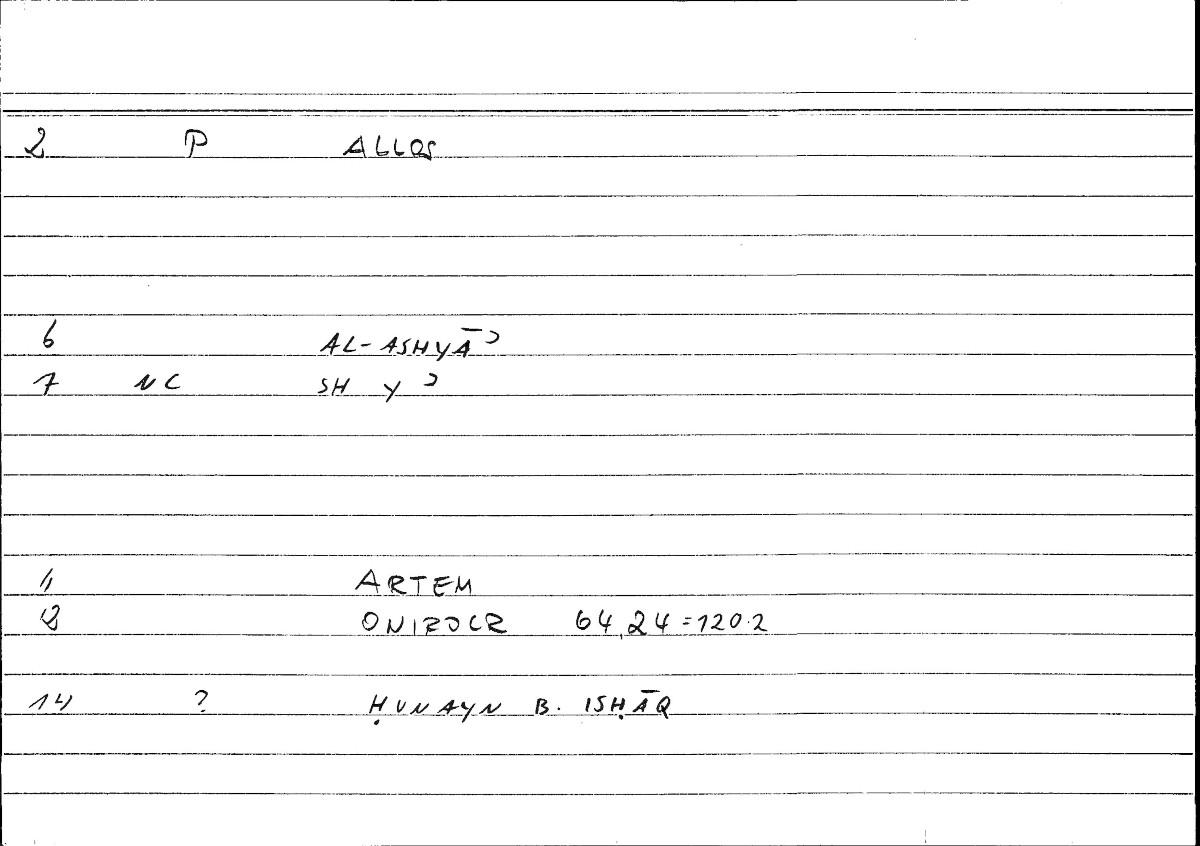 2 P ALLOS
6 AL-ASHYĀʾ
7 NC SH Y ʾ
11 ARTEM
12 ONIROCR 64,24=120.2
14 ? ḤUNAYN B. ISḤĀQ